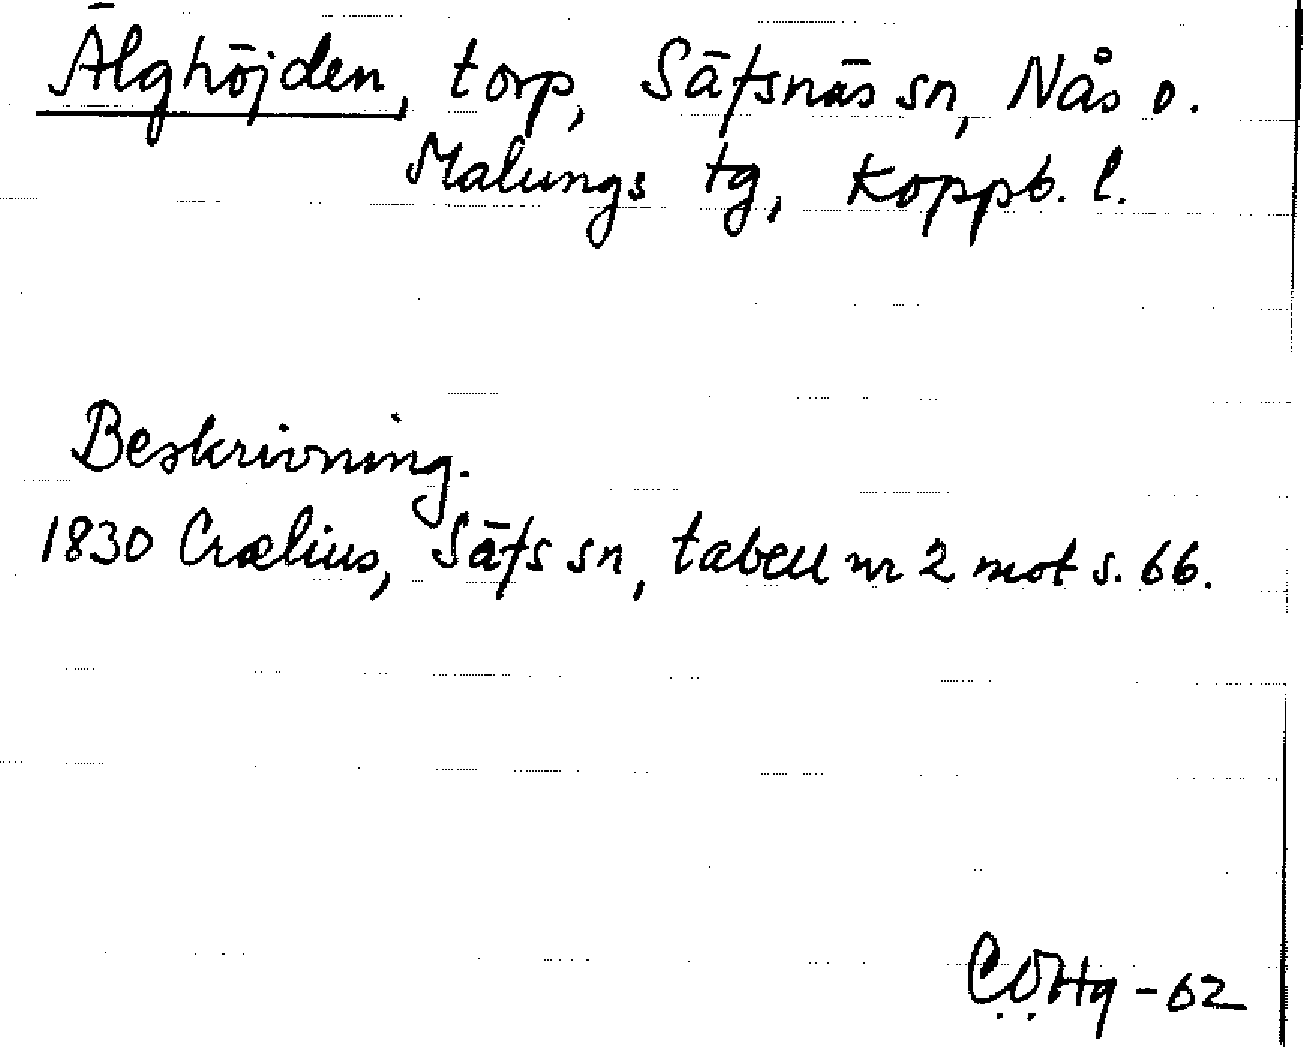 Älghöjden, torp, Säfsnäs sn, Nås o.
Malungs tg, Koppb. l.
Beskrivning.
1830 Crælius, Säfs sn, tabell nr 2 mot s. 66.
CÖHg - 62